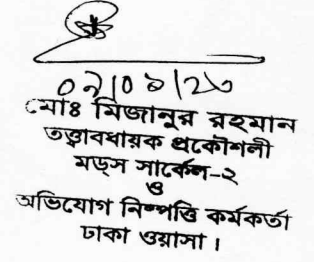 মোঃ মিজানুর রহমান
তত্ত্বাবধায়ক প্রকৌশলী
মড্স সার্কেল-২
ও
অভিযোগ নিষ্পত্তি কর্মকর্তা
ঢাকা ওয়াসা ।